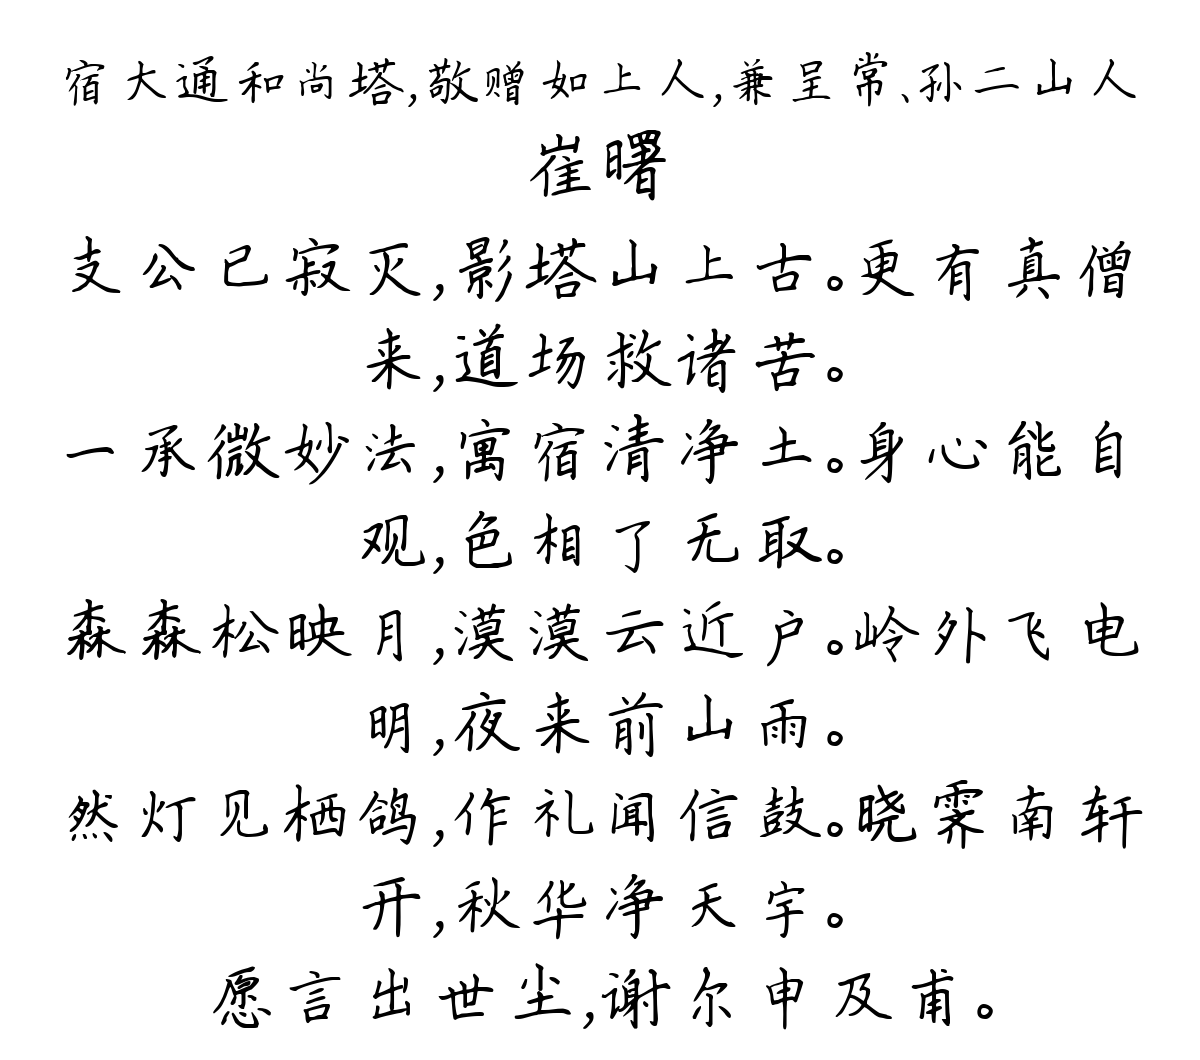 宿大通和尚塔,敬赠如上人,兼呈常、孙二山人
崔曙
支公已寂灭,影塔山上古。更有真僧
来,道场救诸苦。
一承微妙法,寓宿清净土。身心能自
观,色相了无取。
森森松映月,漠漠云近户。岭外飞电
明,夜来前山雨。
然灯见栖鸽,作礼闻信鼓。晓霁南轩
开,秋华净天宇。
愿言出世尘,谢尔申及甫。